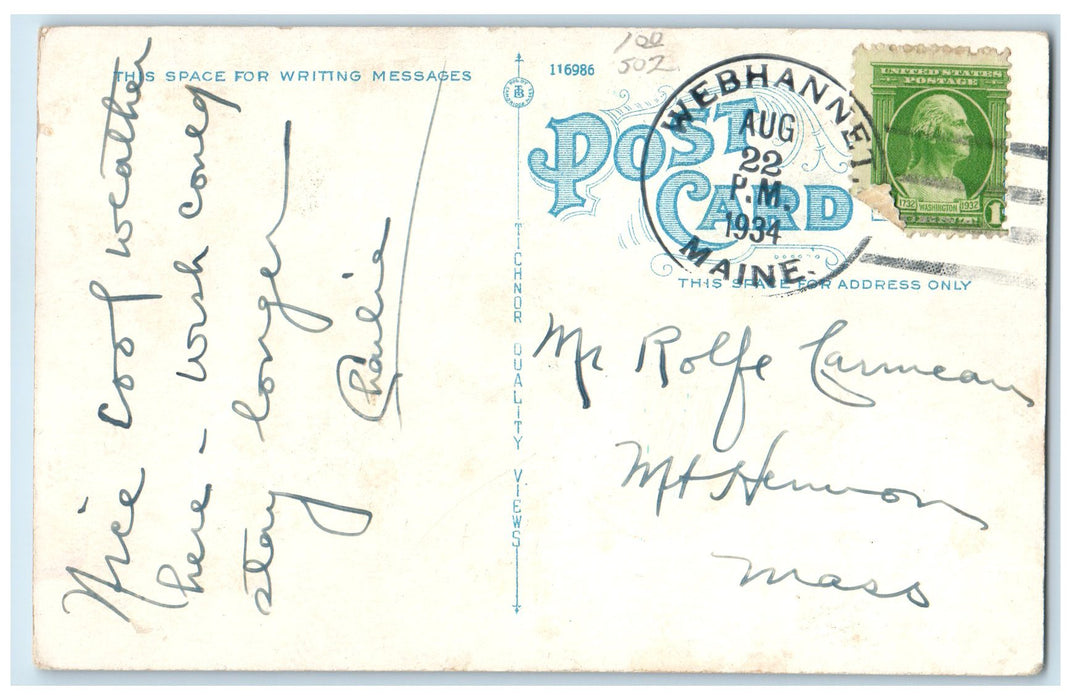 THIS SPACE FOR WRITING MESSAGES
Nice cool weather
here - wish could
stay longer
Charlie
TICHNOR QUALITY VIEWS
116986
100
502
POST CARD
WEBHANNET.
AUG
22
P.M.
1934
MAINE.
UNITED STATES
POSTAGE
1732 WASHINGTON 1932
1
THIS SPACE FOR ADDRESS ONLY
Mr Rolfe Carmean
Mt Hermon
Mass